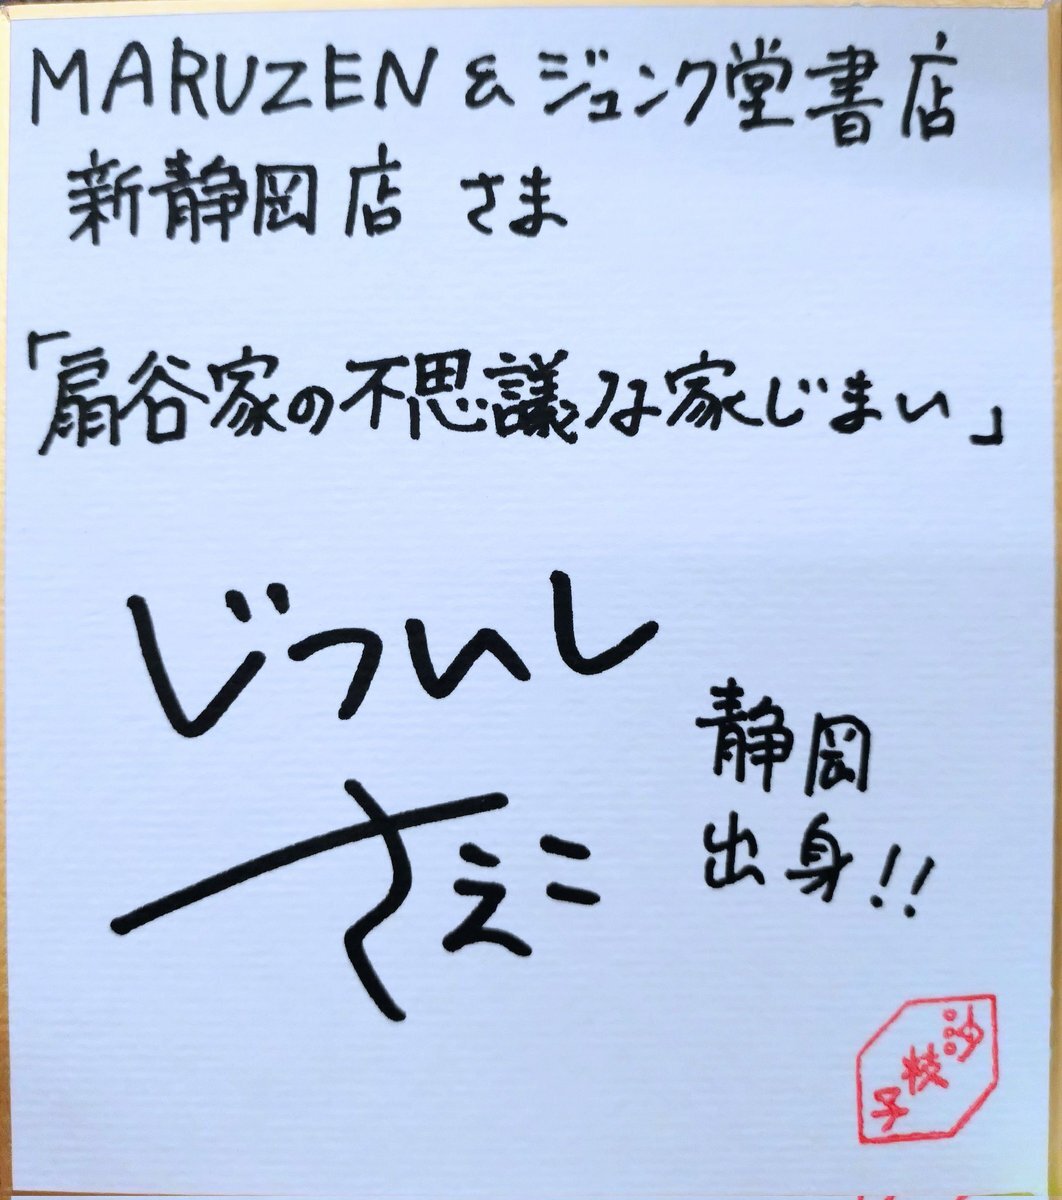 MARUZEN & ジュンク堂書店
新静岡店 さま
「扇谷家の不思議な家じまい」
じついし
さえこ
静岡
出身!!
沙枝子